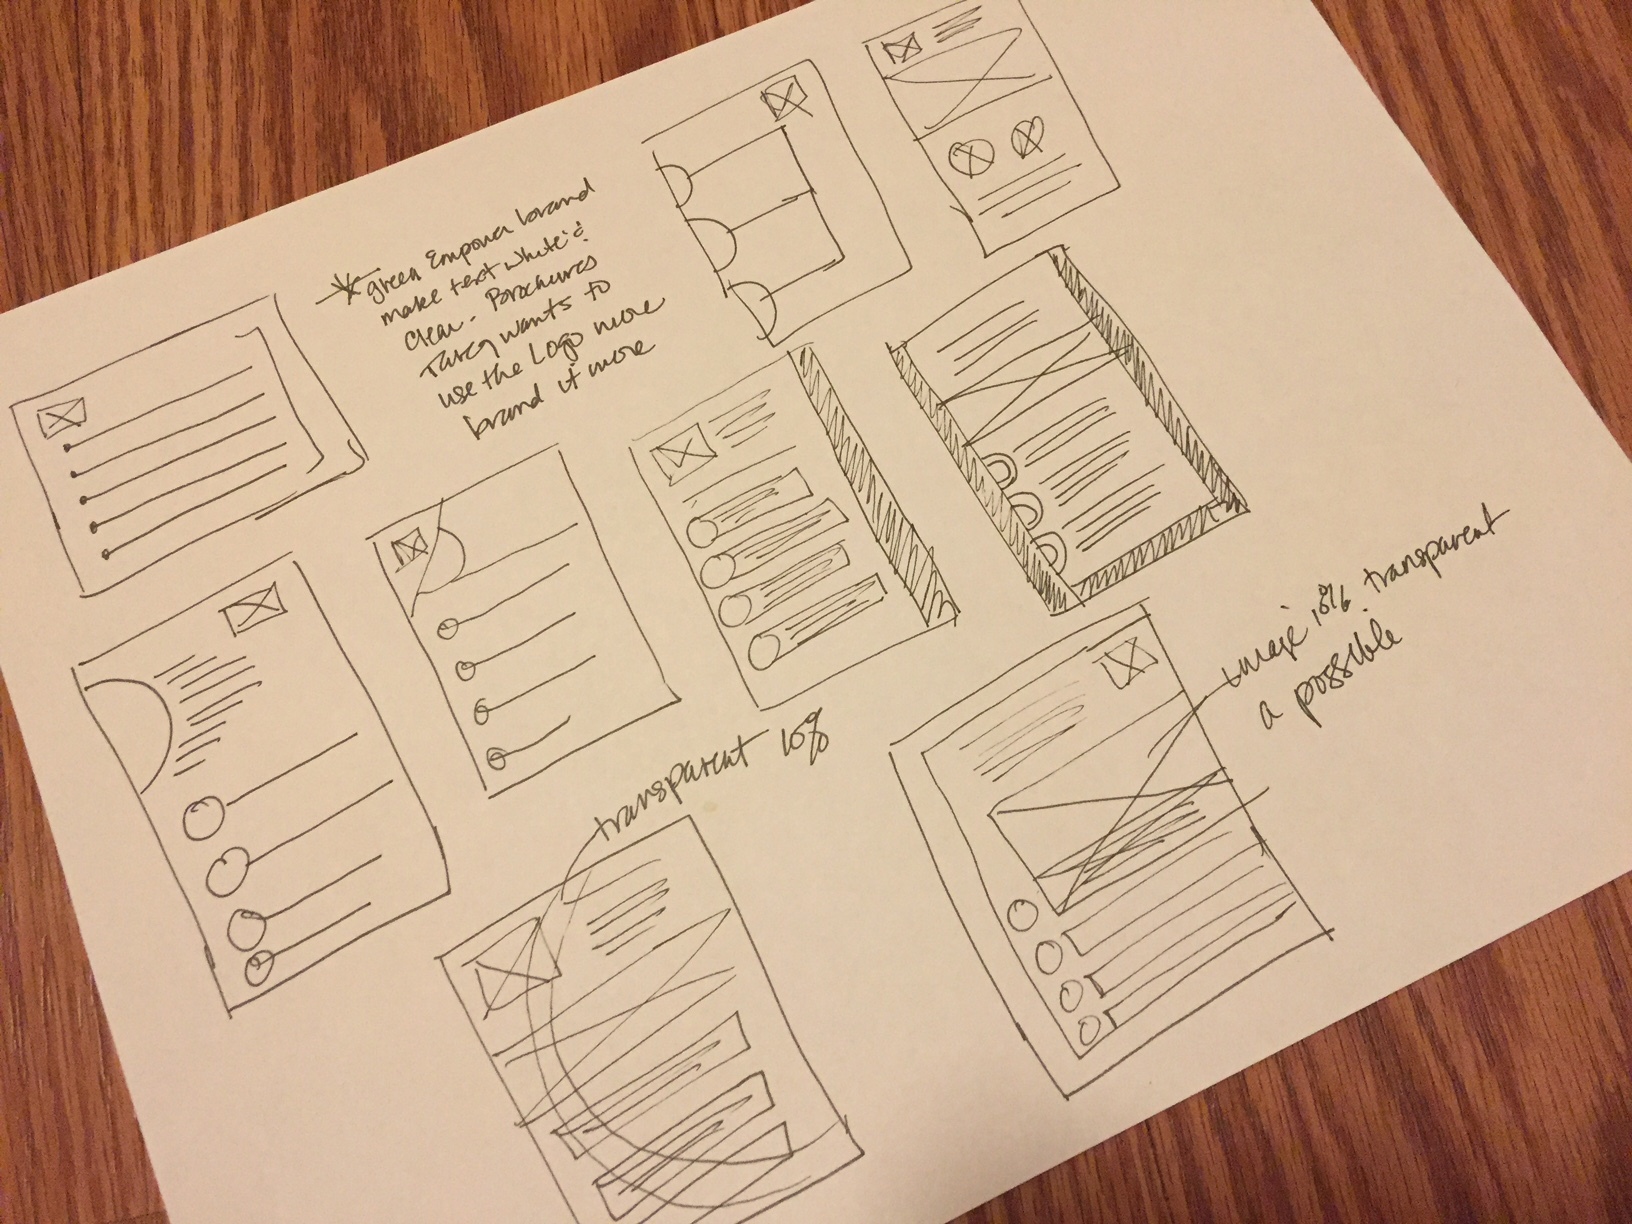 green Empower brand
make text white &
clean - Brochures
wants to
use the Logo more
brand it more
transparent 10%
image 10% transparent
a possible